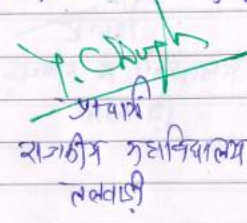 प्राचार्य
राजकीय महाविद्यालय
तलवाड़ी